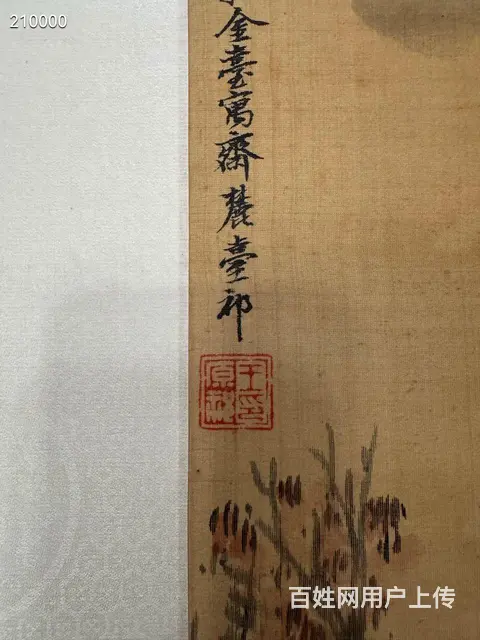 210000
金臺寓齋麓臺祁
王原祁印
百姓网用户上传